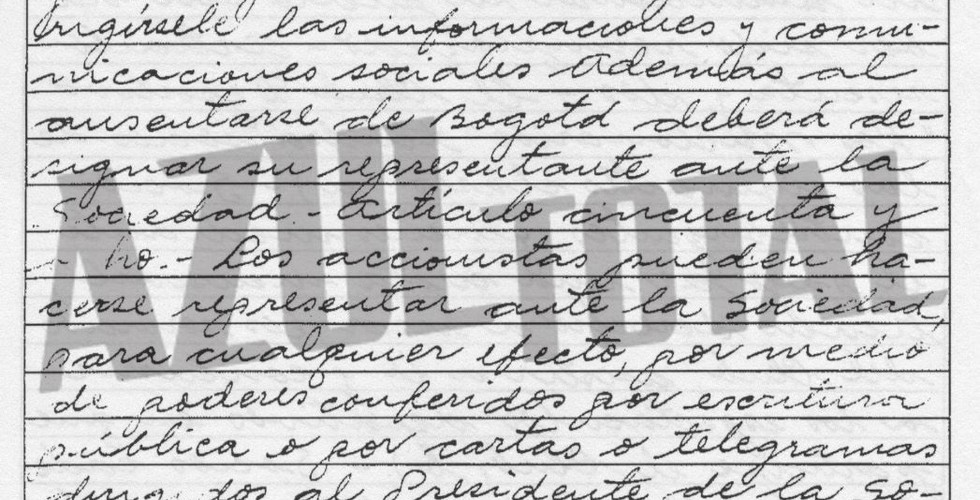 dirigírsele las informaciones y comu-
nicaciones sociales Además al
ausentarse de Bogotá deberá de-
signar su representante ante la
Sociedad.- Artículo cincuenta y
ocho.- Los accionistas pueden ha-
cerse representar ante la Sociedad,
para cualquier efecto, por medio
de poderes conferidos por escritura
pública o por cartas o telegramas
dirigidos al Presidente de la So-
AZUL TOTAL